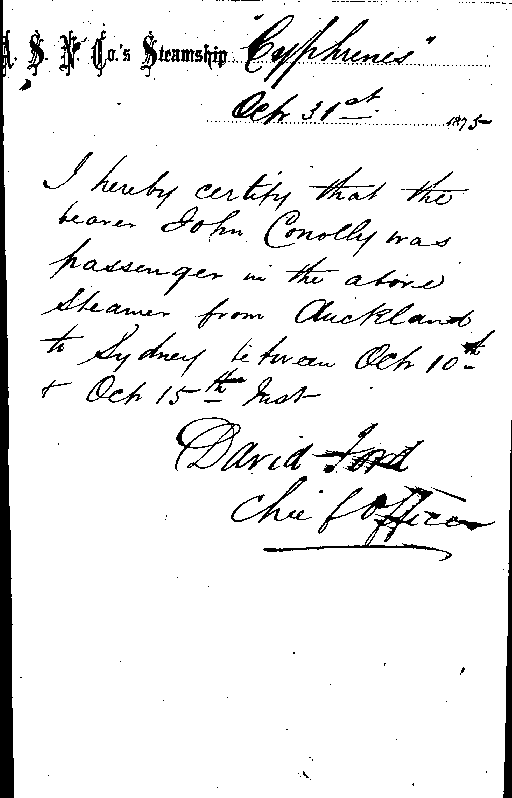 A. S. N. Co.'s Steamship "Cyphrenes"
Octr 31st 1875
I hereby certify that the
bearer John Conolly was
passenger in the above
Steamer from Auckland
to Sydney between Octr 10th
& Octr 15th Inst
David Ford
Chief Officer